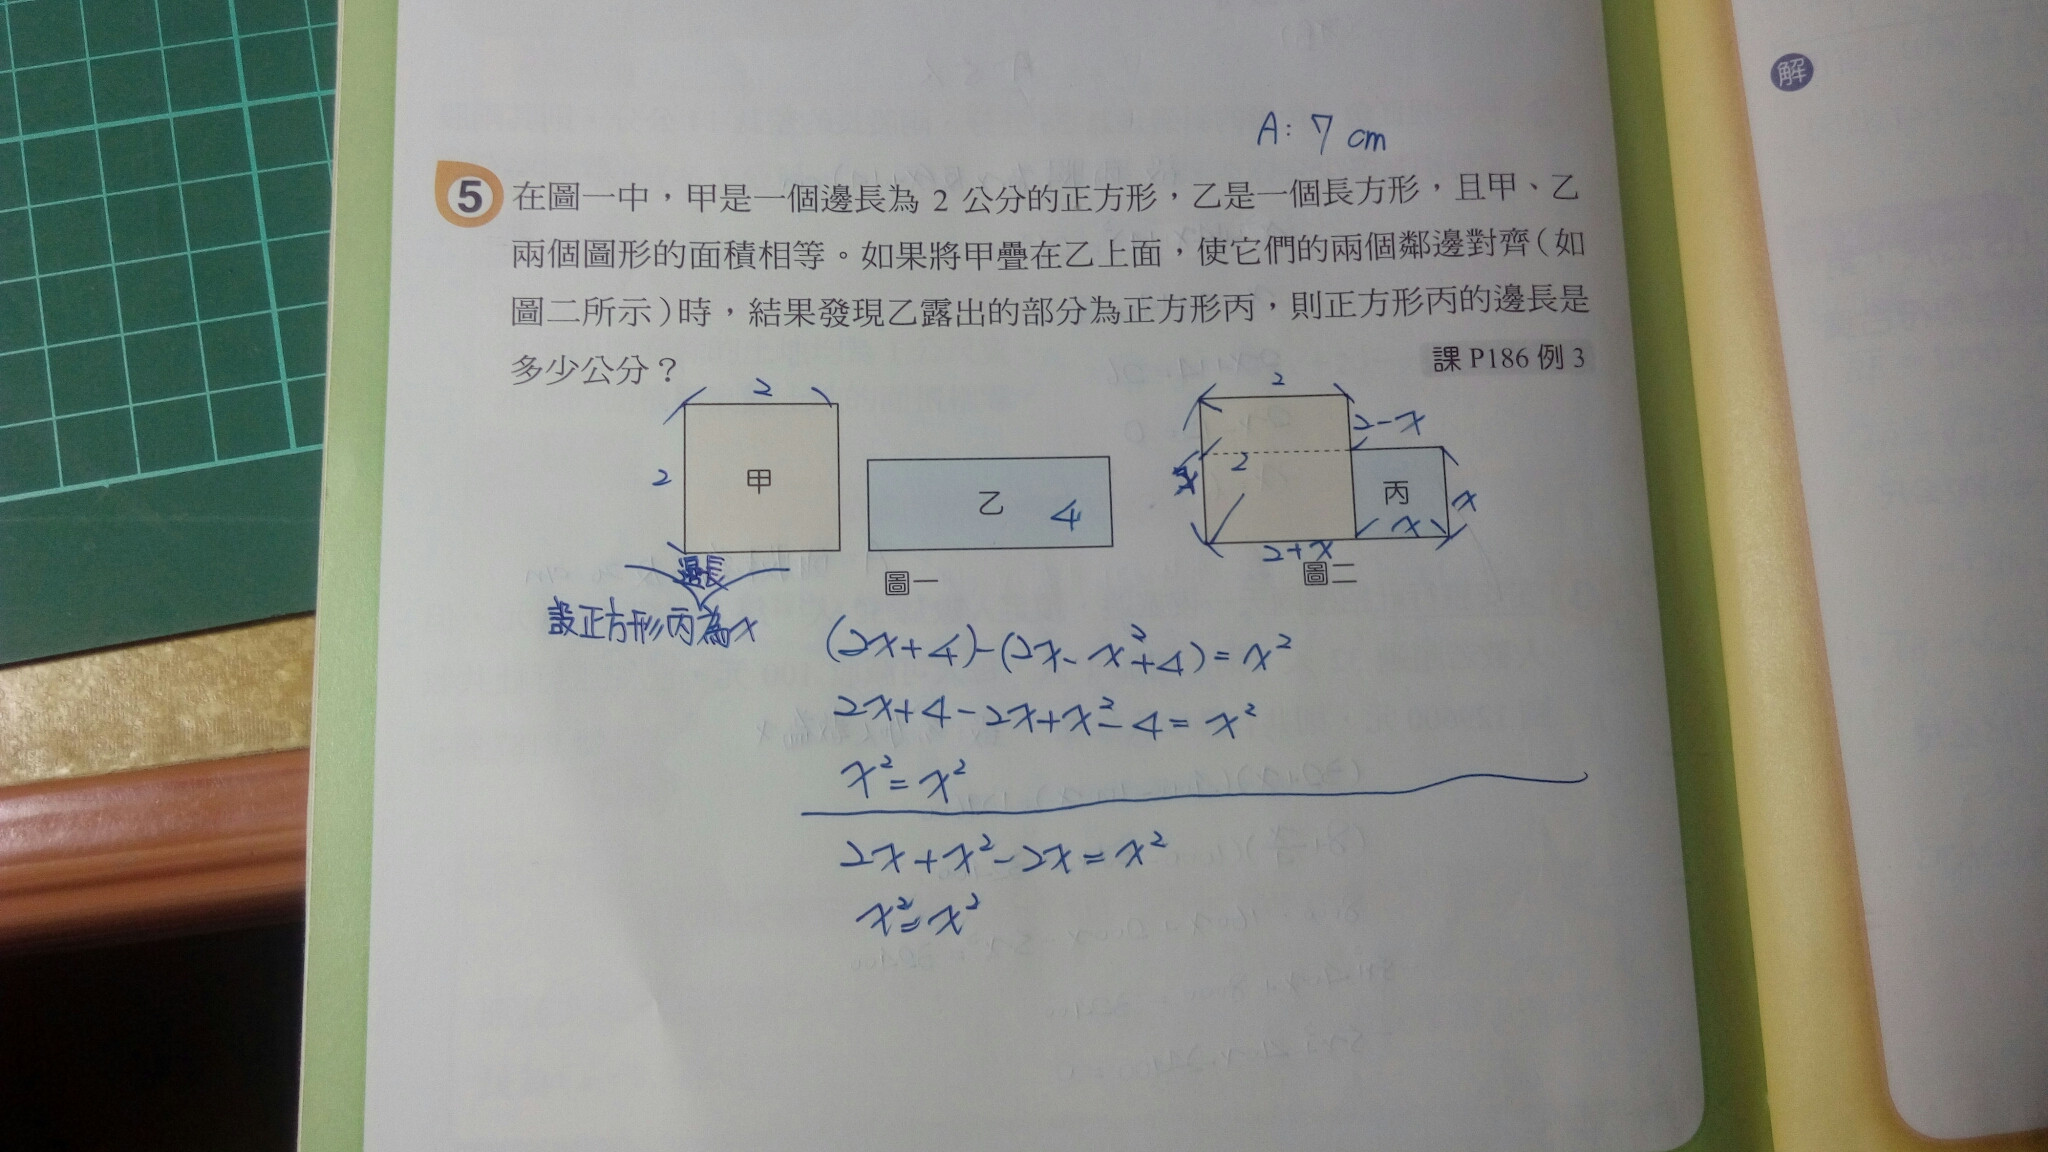 解
A: 7 cm
5 在圖一中，甲是一個邊長為 2 公分的正方形，乙是一個長方形，且甲、乙
兩個圖形的面積相等。如果將甲疊在乙上面，使它們的兩個鄰邊對齊（如
圖二所示）時，結果發現乙露出的部分為正方形丙，則正方形丙的邊長是
多少公分？
課 P186 例 3
2
2
甲
乙 4
圖一
2
2-x
2
丙
x
x
2+x
圖二
邊長
設正方形丙為x
(2x+4)-(2x-x²+4)=x²
2x+4-2x+x²-4=x²
x²=x²
2x+x²-2x=x²
x²=x²